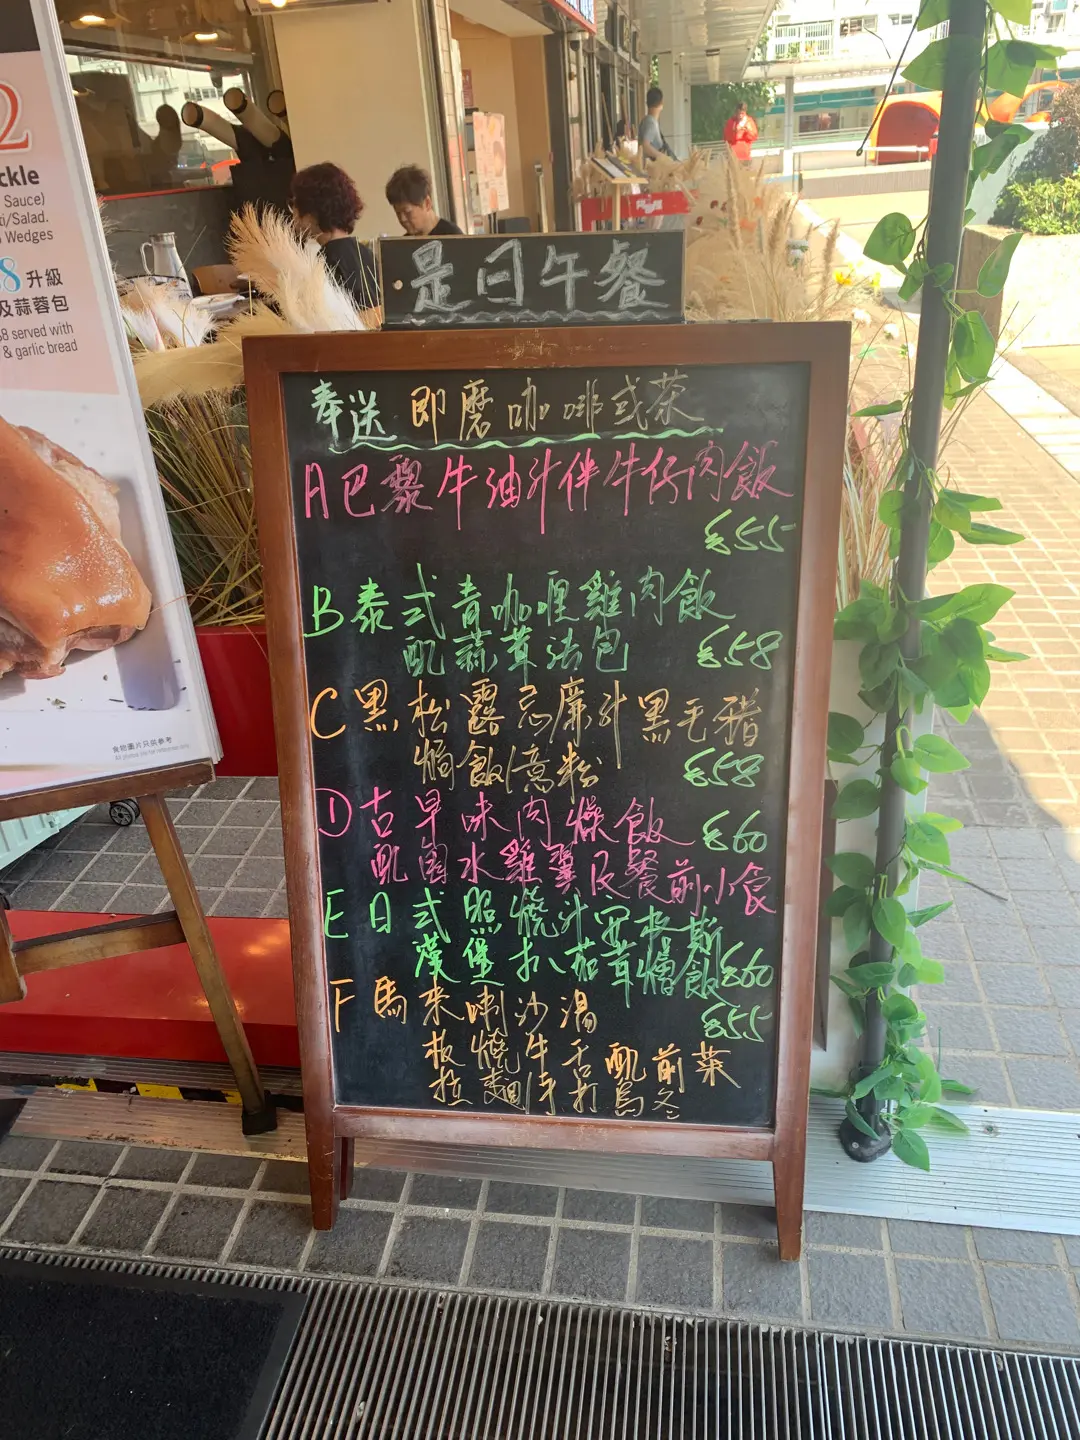 2
ckle
Sauce)
ti/Salad.
Wedges
8 升級
及蒜蓉包
38 served with
& garlic bread
食物圖片只供參考
是日午餐
奉送 即磨咖啡或茶
A 巴黎牛油汁伴牛仔肉飯
$55
B 泰式青咖喱雞肉飯
配蒜茸法包 $58
C 黑松露忌廉汁黑毛豬
焗飯/意粉 $58
D 古早味肉燥飯 $60
配鹵水雞翼及餐前小食
E 日式照燒汁安格斯
漢堡扒茄茸焗飯 $60
F 馬來喇沙湯 $55
板燒牛舌配前菜
拉麵/手打烏冬